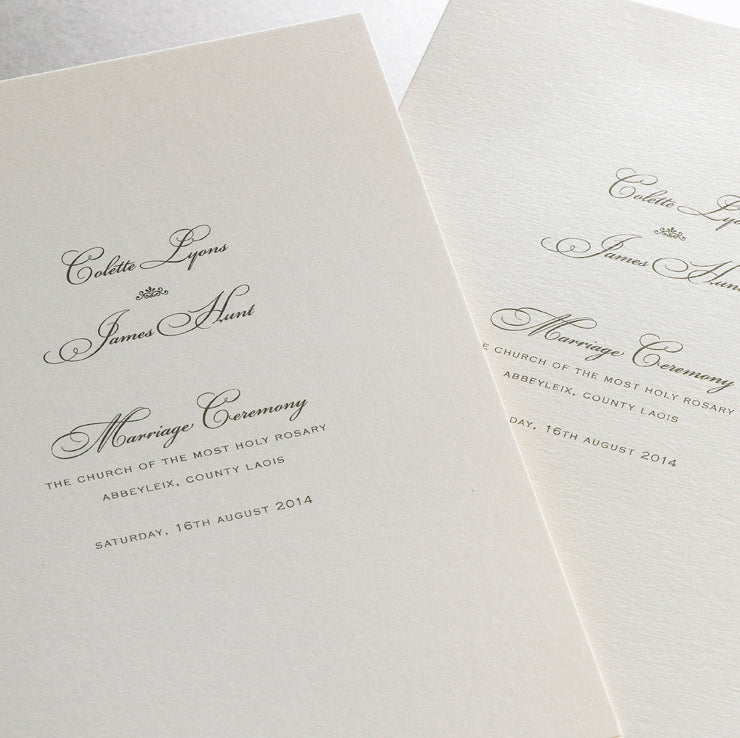 Colette Lyons
James Hunt
Marriage Ceremony
THE CHURCH OF THE MOST HOLY ROSARY
ABBEYLEIX, COUNTY LAOIS
SATURDAY, 16TH AUGUST 2014
Colette Lyo
James Hunt
Marriage Ceremony
E CHURCH OF THE MOST HOLY ROSARY
ABBEYLEIX, COUNTY LAOIS
DAY, 16TH AUGUST 2014